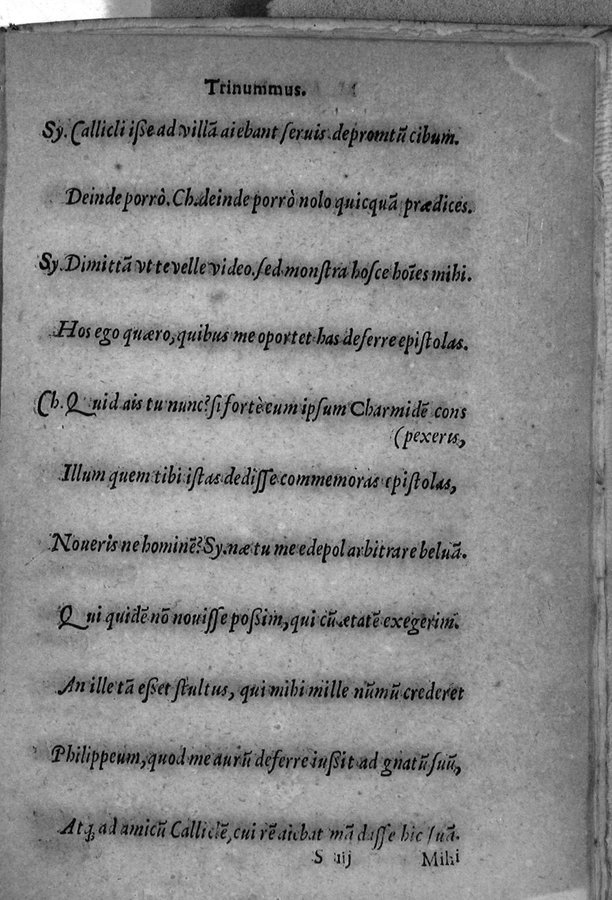 Trinummus.
Sy. Callicli iße ad villã aiebant seruis depromtũ cibum.
Deinde porrò. Ch. deinde porrò nolo quicquã prædices.
Sy. Dimittã vt te velle video. sed monstra hosce hoĩes mihi.
Hos ego quæro, quibus me oportet has deferre epistolas.
Ch. Quid ais tu nunc? si fortè eum ipsum Charmidẽ cons
(pexeris,
Illum quem tibi istas dedisse commemoras epistolas,
Noueris ne hominẽ? Sy. næ tu me edepol arbitrare beluã.
Qui quidẽ nõ nouisse poßim, qui cũ ætatẽ exegerim.
An ille tã eßet stultus, qui mihi mille nũmũ crederet
Philippeum, quod me aurũ deferre iußit ad gnatũ suũ,
Atq; ad amicũ Calliclẽ, cui rẽ aiebat mã dasse hic suã.
S iij
Mihi